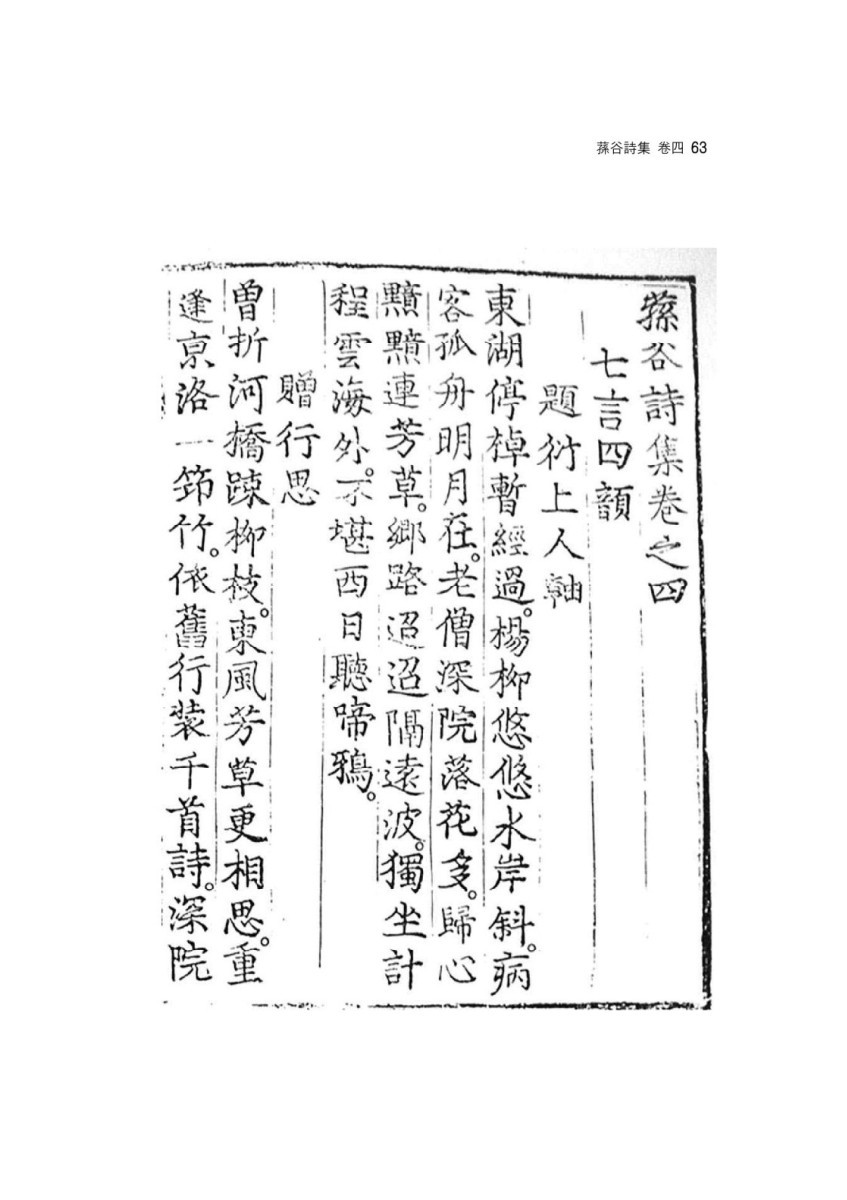 蓀谷詩集 卷四 63
蓀谷詩集卷之四
七言四韻
題衍上人軸
東湖停棹暫經過。楊柳悠悠水岸斜。病
客孤舟明月在。老僧深院落花多。歸心
黯黯連芳草。鄉路迢迢隔遠波。獨坐計
程雲海外。不堪西日聽啼鴉。
贈行思
曾折河橋踈柳枝。東風芳草更相思。重
逢京洛一筇竹。依舊行裝千首詩。深院